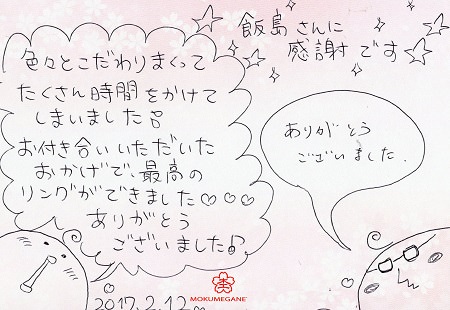 飯島さんに
感謝です
色々とこだわりまくって
たくさん時間をかけて
しまいました
お付き合いいただいた
おかげで、最高の
リングができました♡♡♡
ありがとう
ございました♪
ありがとう
ございました。
MOKUMEGANE
2017.2.12